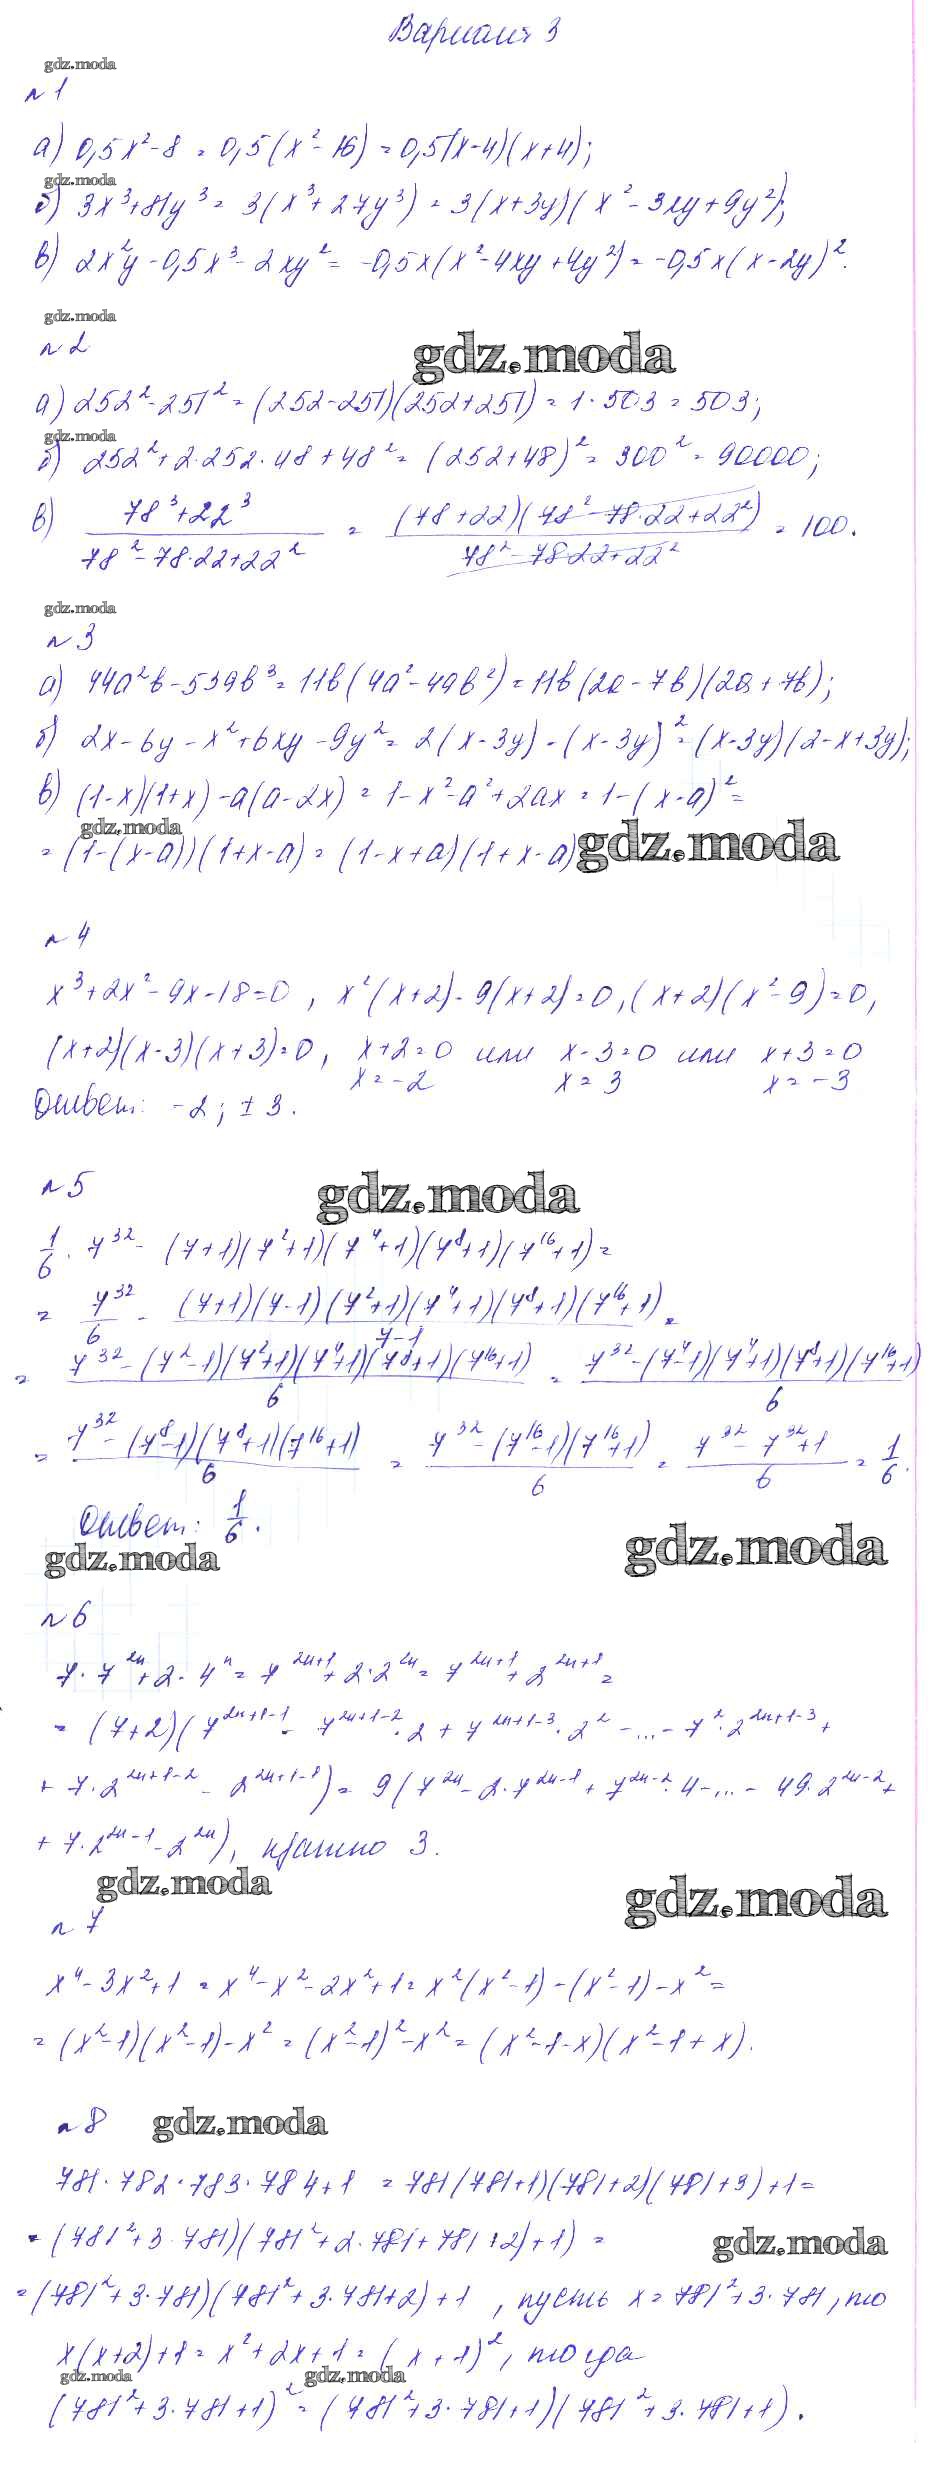 Вариант 3
gdz.moda
№1
а) 0,5x² - 8 = 0,5(x² - 16) = 0,5(x-4)(x+4);
gdz.moda
б) 3x³+81y³ = 3(x³+27y³) = 3(x+3y)(x² - 3xy+9y²);
в) 2x²y - 0,5x³ - 2xy² = -0,5x(x²-4xy+4y²) = -0,5x(x-2y)².
gdz.moda
№2
gdz.moda
а) 252² - 251² = (252-251)(252+251) = 1·503 = 503;
gdz.moda
б) 252² + 2·252·48 + 48² = (252+48)² = 300² = 90000;
в) (78³+22³)/(78² - 78·22+22²) = ((78+22)(78² - 78·22+22²))/(78² - 78·22+22²) = 100.
gdz.moda
№3
а) 44a²b - 539b³ = 11b(4a² - 49b²) = 11b(2a - 7b)(2a + 7b);
б) 2x - 6y - x² + 6xy - 9y² = 2(x-3y) - (x-3y)² = (x-3y)(2-x+3y);
в) (1-x)(1+x) - a(a-2x) = 1-x²-a²+2ax = 1-(x-a)² =
gdz.moda
= (1-(x-a))(1+x-a) = (1-x+a)(1+x-a)
gdz.moda
№4
x³+2x²-9x-18=0, x²(x+2)-9(x+2)=0, (x+2)(x²-9)=0,
(x+2)(x-3)(x+3)=0, x+2=0 или x-3=0 или x+3=0
x=-2 x=3 x=-3
Ответ: -2; ±3.
№5
gdz.moda
1/6 · 7³² - (7+1)(7²+1)(7⁴+1)(7⁸+1)(7¹⁶+1) =
= 7³²/6 - ((7+1)(7-1)(7²+1)(7⁴+1)(7⁸+1)(7¹⁶+1))/(7-1) =
= (7³² - (7²-1)(7²+1)(7⁴+1)(7⁸+1)(7¹⁶+1))/6 = (7³² - (7⁴-1)(7⁴+1)(7⁸+1)(7¹⁶+1))/6
= (7³² - (7⁸-1)(7⁸+1)(7¹⁶+1))/6 = (7³² - (7¹⁶-1)(7¹⁶+1))/6 = (7³² - 7³²+1)/6 = 1/6.
Ответ: 1/6.
gdz.moda
gdz.moda
№6
7·7²ⁿ + 2·4ⁿ = 7²ⁿ⁺¹ + 2·2²ⁿ = 7²ⁿ⁺¹ + 2²ⁿ⁺¹ =
= (7+2)(7²ⁿ⁺¹⁻¹ - 7²ⁿ⁺¹⁻²·2 + 7²ⁿ⁺¹⁻³·2² - ... - 7²·2²ⁿ⁺¹⁻³ +
+ 7·2²ⁿ⁺¹⁻² - 2²ⁿ⁺¹⁻¹) = 9(7²ⁿ - 2·7²ⁿ⁻¹ + 7²ⁿ⁻²·4 - ... - 49·2²ⁿ⁻² +
+ 7·2²ⁿ⁻¹ - 2²ⁿ), кратно 3.
gdz.moda
gdz.moda
№7
x⁴ - 3x² + 1 = x⁴ - x² - 2x² + 1 = x²(x²-1) - (x²-1) - x² =
= (x²-1)(x²-1) - x² = (x²-1)² - x² = (x²-1-x)(x²-1+x).
№8
gdz.moda
781·782·783·784+1 = 781(781+1)(781+2)(781+3)+1 =
= (781²+3·781)(781²+2·781+781+2)+1) =
gdz.moda
= (781²+3·781)(781²+3·781+2)+1, пусть x = 781²+3·781, то
x(x+2)+1 = x²+2x+1 = (x+1)², тогда
gdz.moda
gdz.moda
(781²+3·781+1)² = (781²+3·781+1)(781²+3·781+1).